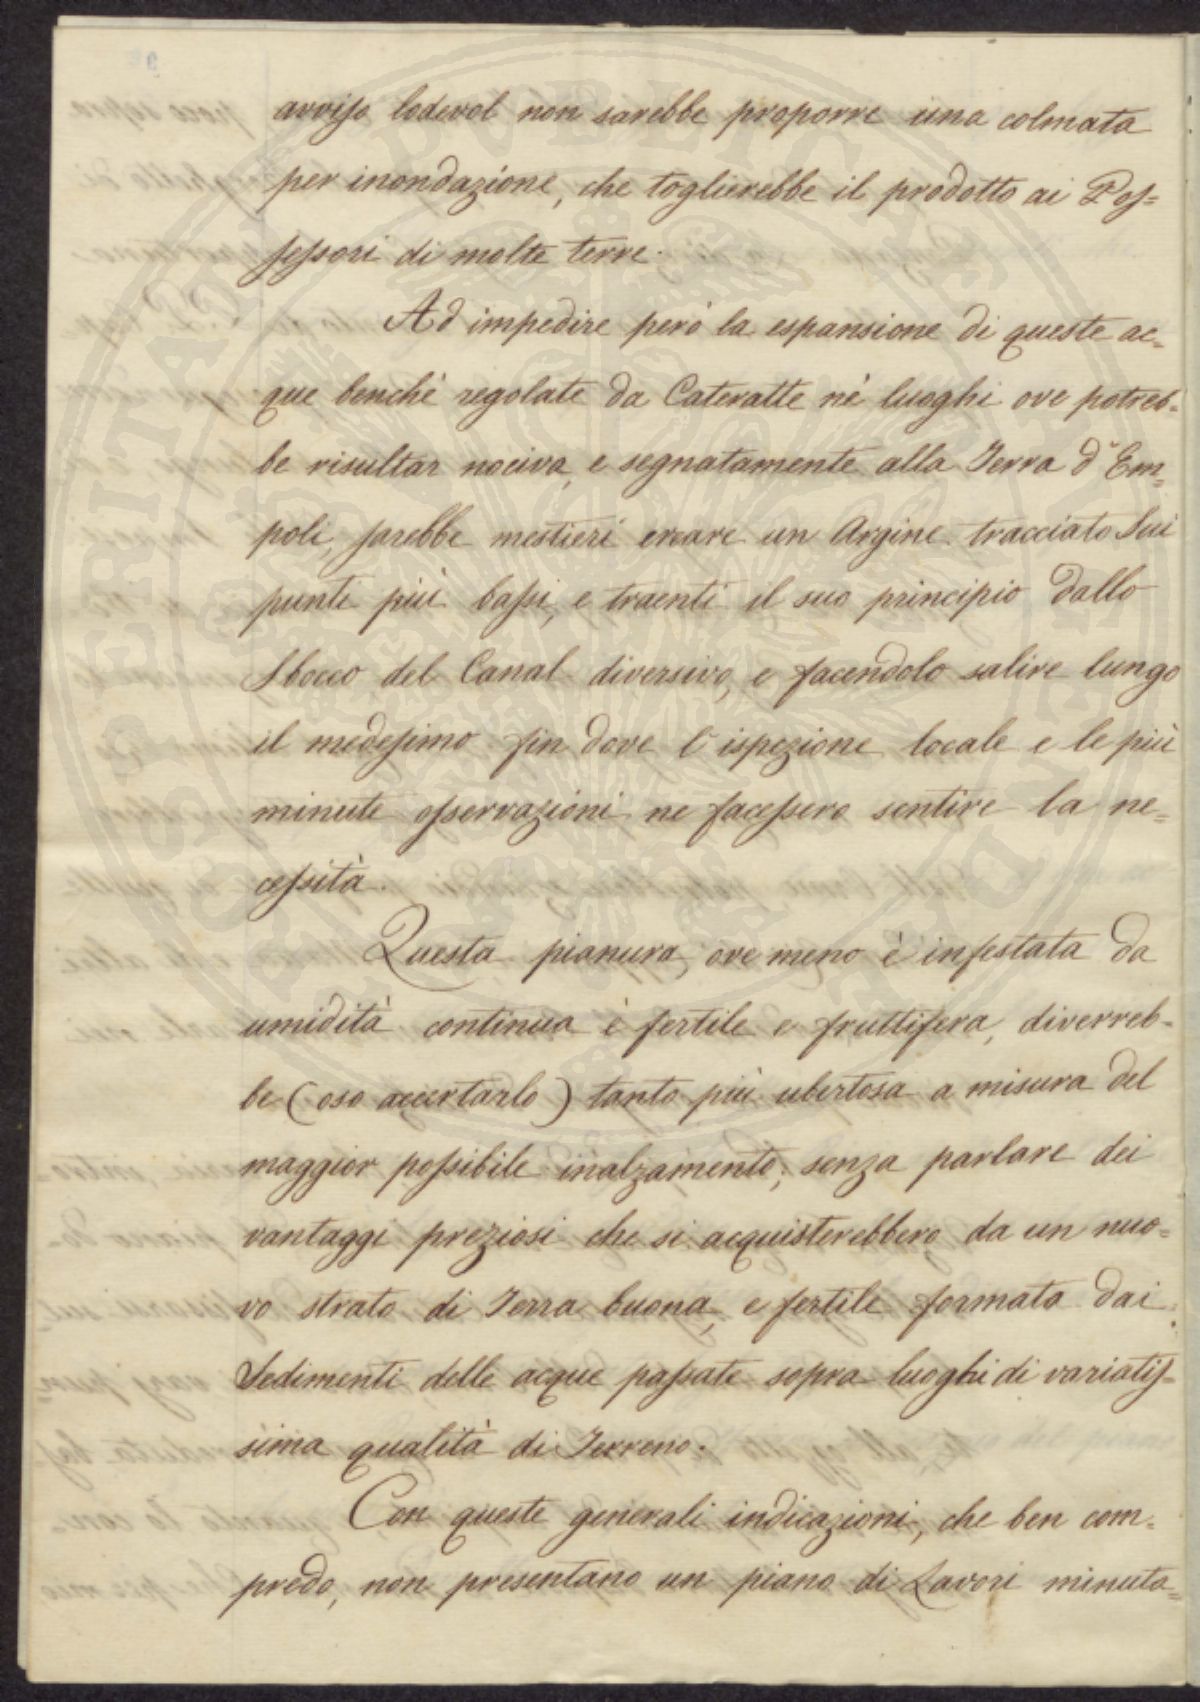 avviso lodevol non sarebbe proporre una colmata
per inondazione, che toglierebbe il prodotto ai Pos=
sessori di molte terre.
Ad impedire però la espansione di queste ac=
que benchè regolate da Cateratte nè luoghi ove potreb=
be risultar nociva, e segnatamente alla Terra d'Em=
poli, sarebbe mestieri creare un Argine tracciato Sui
punti più bassi, e traenti il suo principio dallo
Sbocco del Canal diversivo, e facendolo salire lungo
il medesimo fin dove l'ispezione locale e le più
minute osservazioni ne facessero sentire la ne=
cessità.
Questa pianura, ove meno è infestata da
umidità continua è fertile e fruttifera, diverreb=
be (oso accertarlo) tanto più ubertosa a misura del
maggior possibile inalzamento; senza parlare dei
vantaggi preziosi che si acquisterebbero da un nuo=
vo strato di Terra buona, e fertile formato dai
Sedimenti delle acque passate sopra luoghi di variatis=
sima qualità di Terreno.
Con queste generali indicazioni, che ben com=
predo, non presentano un piano di Lavori minuta=